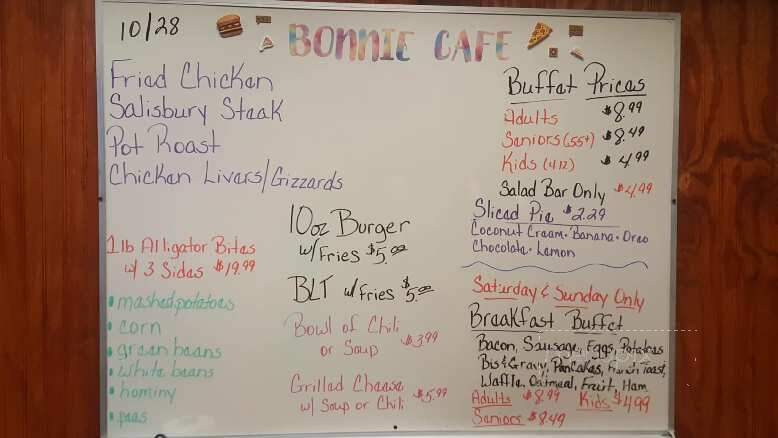 10/28
BONNIE CAFE
Fried Chicken
Salisbury Steak
Pot Roast
Chicken Livers/Gizzards
1lb Alligator Bites
w/ 3 Sides $19.99
• mashed potatoes
• corn
• green beans
• white beans
• hominy
• peas
10oz Burger
w/ Fries $5.00
BLT w/ Fries $5.00
Bowl of Chili
or Soup $3.99
Grilled Cheese
w/ Soup or Chili $5.99
Buffet Prices
Adults $8.99
Seniors (55+) $8.49
Kids (4-12) $4.99
Salad Bar Only $4.99
Sliced Pie $2.29
Coconut Cream • Banana • Oreo
Chocolate • Lemon
Saturday & Sunday Only
Breakfast Buffet
Bacon, Sausage, Eggs, Potatoes
Bis & Gravy, Pancakes, French Toast,
Waffle, Oatmeal, Fruit, Ham
Adults $8.99 Kids $4.99
Seniors $8.49